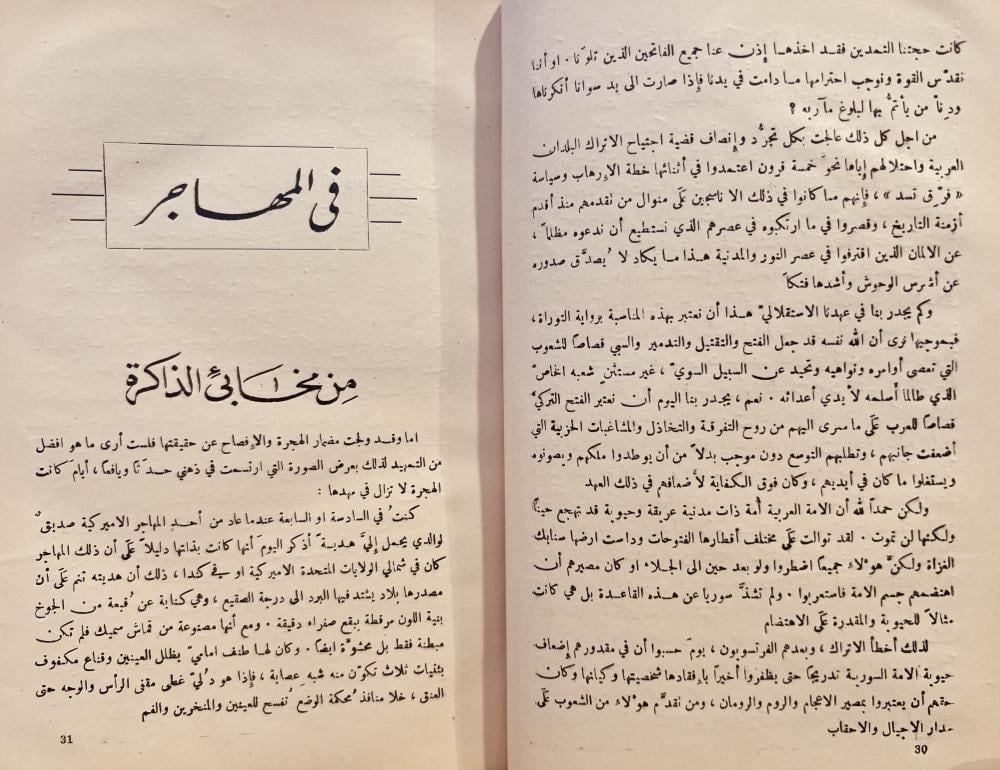 كانت حجتنا التمدين فقد اخذها إذن عنا جميع الفاتحين الذين تلونا . او أننا
نقدّس القوة ونوجب احترامها ما دامت في يدنا فإذا صارت الى يد سوانا أنكرناها
ودِنّا من يأتمُّ بها لبلوغ مآربه ؟
من اجل كل ذلك عالجت بكل تجرُّد وإنصاف قضية اجتياح الاتراك البلدان
العربية واحتلالهم إياها نحوَ خمسة قرون اعتمدوا في أثنائها خطة الإرهاب وسياسة
« فرّق تسد » ، فإنهم ما كانوا في ذلك الا ناسجين عَلَى منوال من تقدمهم منذ أقدم
أزمنة التاريخ ، وقصروا في ما ارتكبوه في عصرهم الذي نستطيع أن ندعوه مظلماً ،
عن الالمان الذين اقترفوا في عصر النور والمدنية هذا ما يكاد لا يُصدَّق صدوره
عن أشرس الوحوش وأشدها فتكاً
وكم يجدر بنا في عهدنا الاستقلاليّ هذا أن نعتبر بهذه المناسبة برواية التوراة ،
فبموجبها نرى أن الله نفسه قد جعل الفتح والتقتيل والتدمير والسبي قصاصاً للشعوب
التي تعصى أوامره ونواهيه وتحيد عن السبيل السويّ ، غير مستثنٍ شعبه الخاصّ
الذي طالما أسلمه لأيدي أعدائه . نعم ، يجدر بنا اليوم أن نعتبر الفتح التركيَّ
قصاصاً للعرب عَلَى ما سرى اليهم من روح التفرقة والتخاذل والمشاغبات الحزبية التي
أضعفت جانبهم ، وتطلبهم التوسع دون موجب بدلاً من أن يوطدوا ملكهم ويصونوه
ويستغلوا ما كان في أيديهم ، وكان فوق الكفاية لأضعافهم في ذلك العهد
ولكن حمداً لله أن الامة العربية أمة ذات مدنية عريقة وحيوية قد تهجع حيناً
ولكنها لن تموت . لقد توالت عَلَى مختلف أقطارها الفتوحات وداست ارضها سنابك
الغزاة ولكنَّ هؤلاء جميعاً اضطروا ولو بعد حين الى الجلاء او كان مصيرهم أن
اهتضمهم جسم الامة فاستعربوا . ولم تشذَّ سوريا عن هذه القاعدة بل هي كانت
مثالاً للحيوية والمقدرة عَلَى الاهتضام
لذلك أخطأ الاتراك ، وبعدهم الفرنسويون ، يومَ حسبوا أن في مقدورهم إضعاف
حيوية الامة السورية تدريجاً حتى يظفروا أخيراً بإفقادها شخصيتها وكيانها وكان
حقهم أن يعتبروا بمصير الاعجام والروم والرومان ، ومن تقدَّم هؤلاء من الشعوب عَلَى
مدار الاجيال والاحقاب
30
في المهاجر
من مخابئ الذاكرة
اما وقد ولجت مضمار الهجرة والإفصاح عن حقيقتها فلست أرى ما هو افضل
من التمهيد لذلك بعرض الصورة التي ارتسمت في ذهني حدثاً ويافعاً ، أيامَ كانت
الهجرة لا تزال في مهدها :
كنتُ في السادسة او السابعة عندما عاد من أحد المهاجر الاميركية صديقٌ
لوالدي يحمل إليَّ هديةً أذكر اليومَ أنها كانت بذاتها دليلاً عَلَى أن ذلك المهاجر
كان في شمالي الولايات المتحدة الاميركية او في كندا ، ذلك أن هديته تنم عَلَى أن
مصدرها بلاد يشتد فيها البرد الى درجة الصقيع ، وهي كناية عن قُبعة من الجوخ
بنية اللون مرقطة ببقع صفراء دقيقة . ومع أنها مصنوعة من قماش سميك فلم تكن
مبطنة فقط بل محشوّة ايضاً . وكان لها طنف اماميّ يظلل العينين وقناع مكفوف
بثنيات ثلاث تكوّن منه شبه عصابة ، فإذا هو دُلّيَ غطى مقفى الرأس والوجه حتى
العنق ، خلا منافذَ مُحكمة الوضع تُفسح للعينين والمنخرين والفم
31